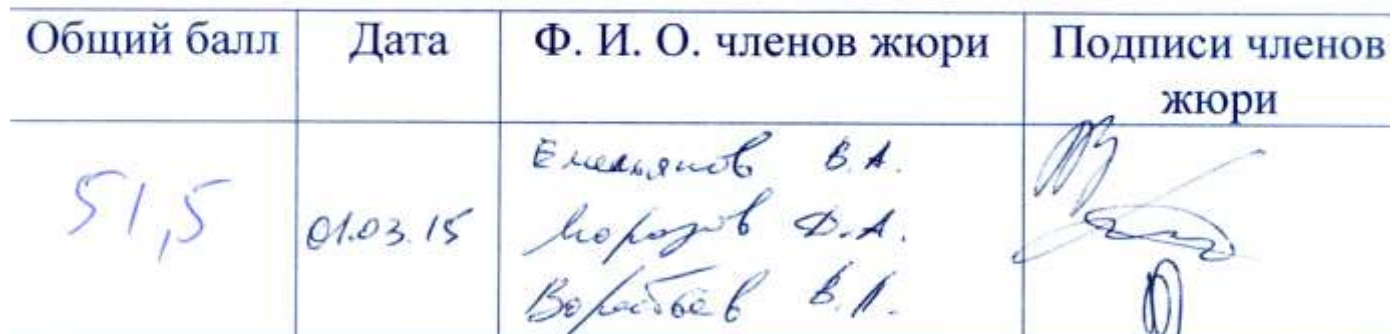 Общий балл
Дата
Ф. И. О. членов жюри
Подписи членов
жюри
51,5
01.03.15
Емельянов В.А.
Морозов Д.А.
Воробьёв В.Л.